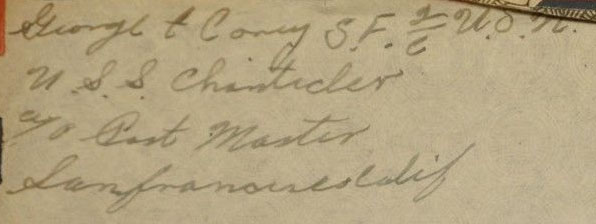 George t Coney S.F. 2/c U.S.N.
U.S.S. Chanticler
c/o Post Master
Sanfranciscocalif